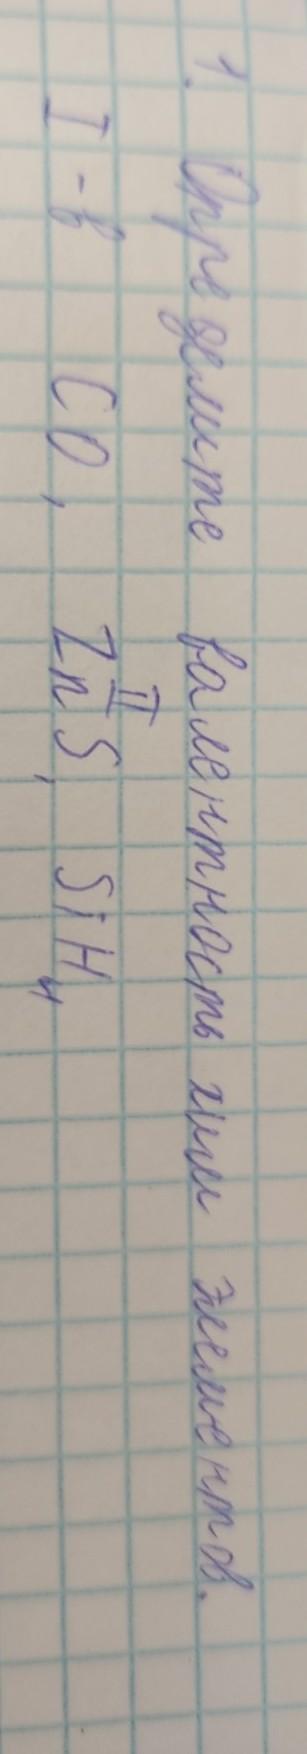 1. Определите валентность хим элементов.
I - в CO, ZnIIS, SiH4